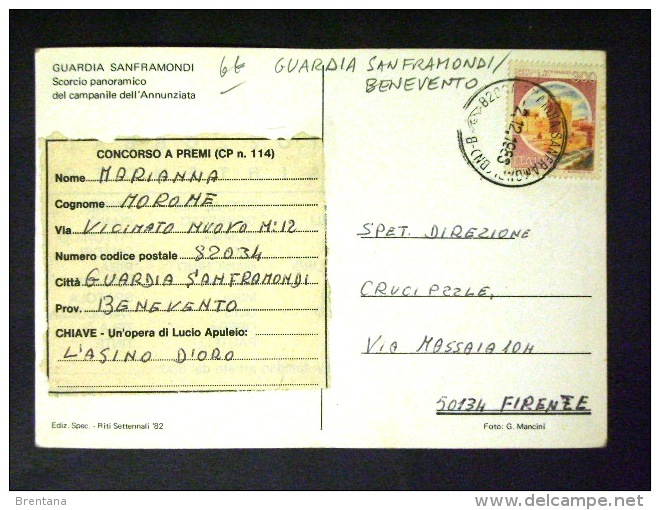 GUARDIA SANFRAMONDI
Scorcio panoramico
del campanile dell'Annunziata
6€ GUARDIA SANFRAMONDI/
BENEVENTO
300
ITALIA
2.12.1983
CONCORSO A PREMI (CP n. 114)
Nome MARIANNA
Cognome MORONE
Via VICINATO NUOVO N:12
Numero codice postale 82034
Città GUARDIA SANFRAMONDI
Prov. BENEVENTO
CHIAVE - Un'opera di Lucio Apuleio:
L'ASINO D'ORO
SPET. DIREZIONE
CRUCI PZZLE,
VIA MASSAIA 10H
50134 FIRENZE
Ediz. Spec. - Riti Settennali '82
Foto: G. Mancini
Brentana
delcampe.net